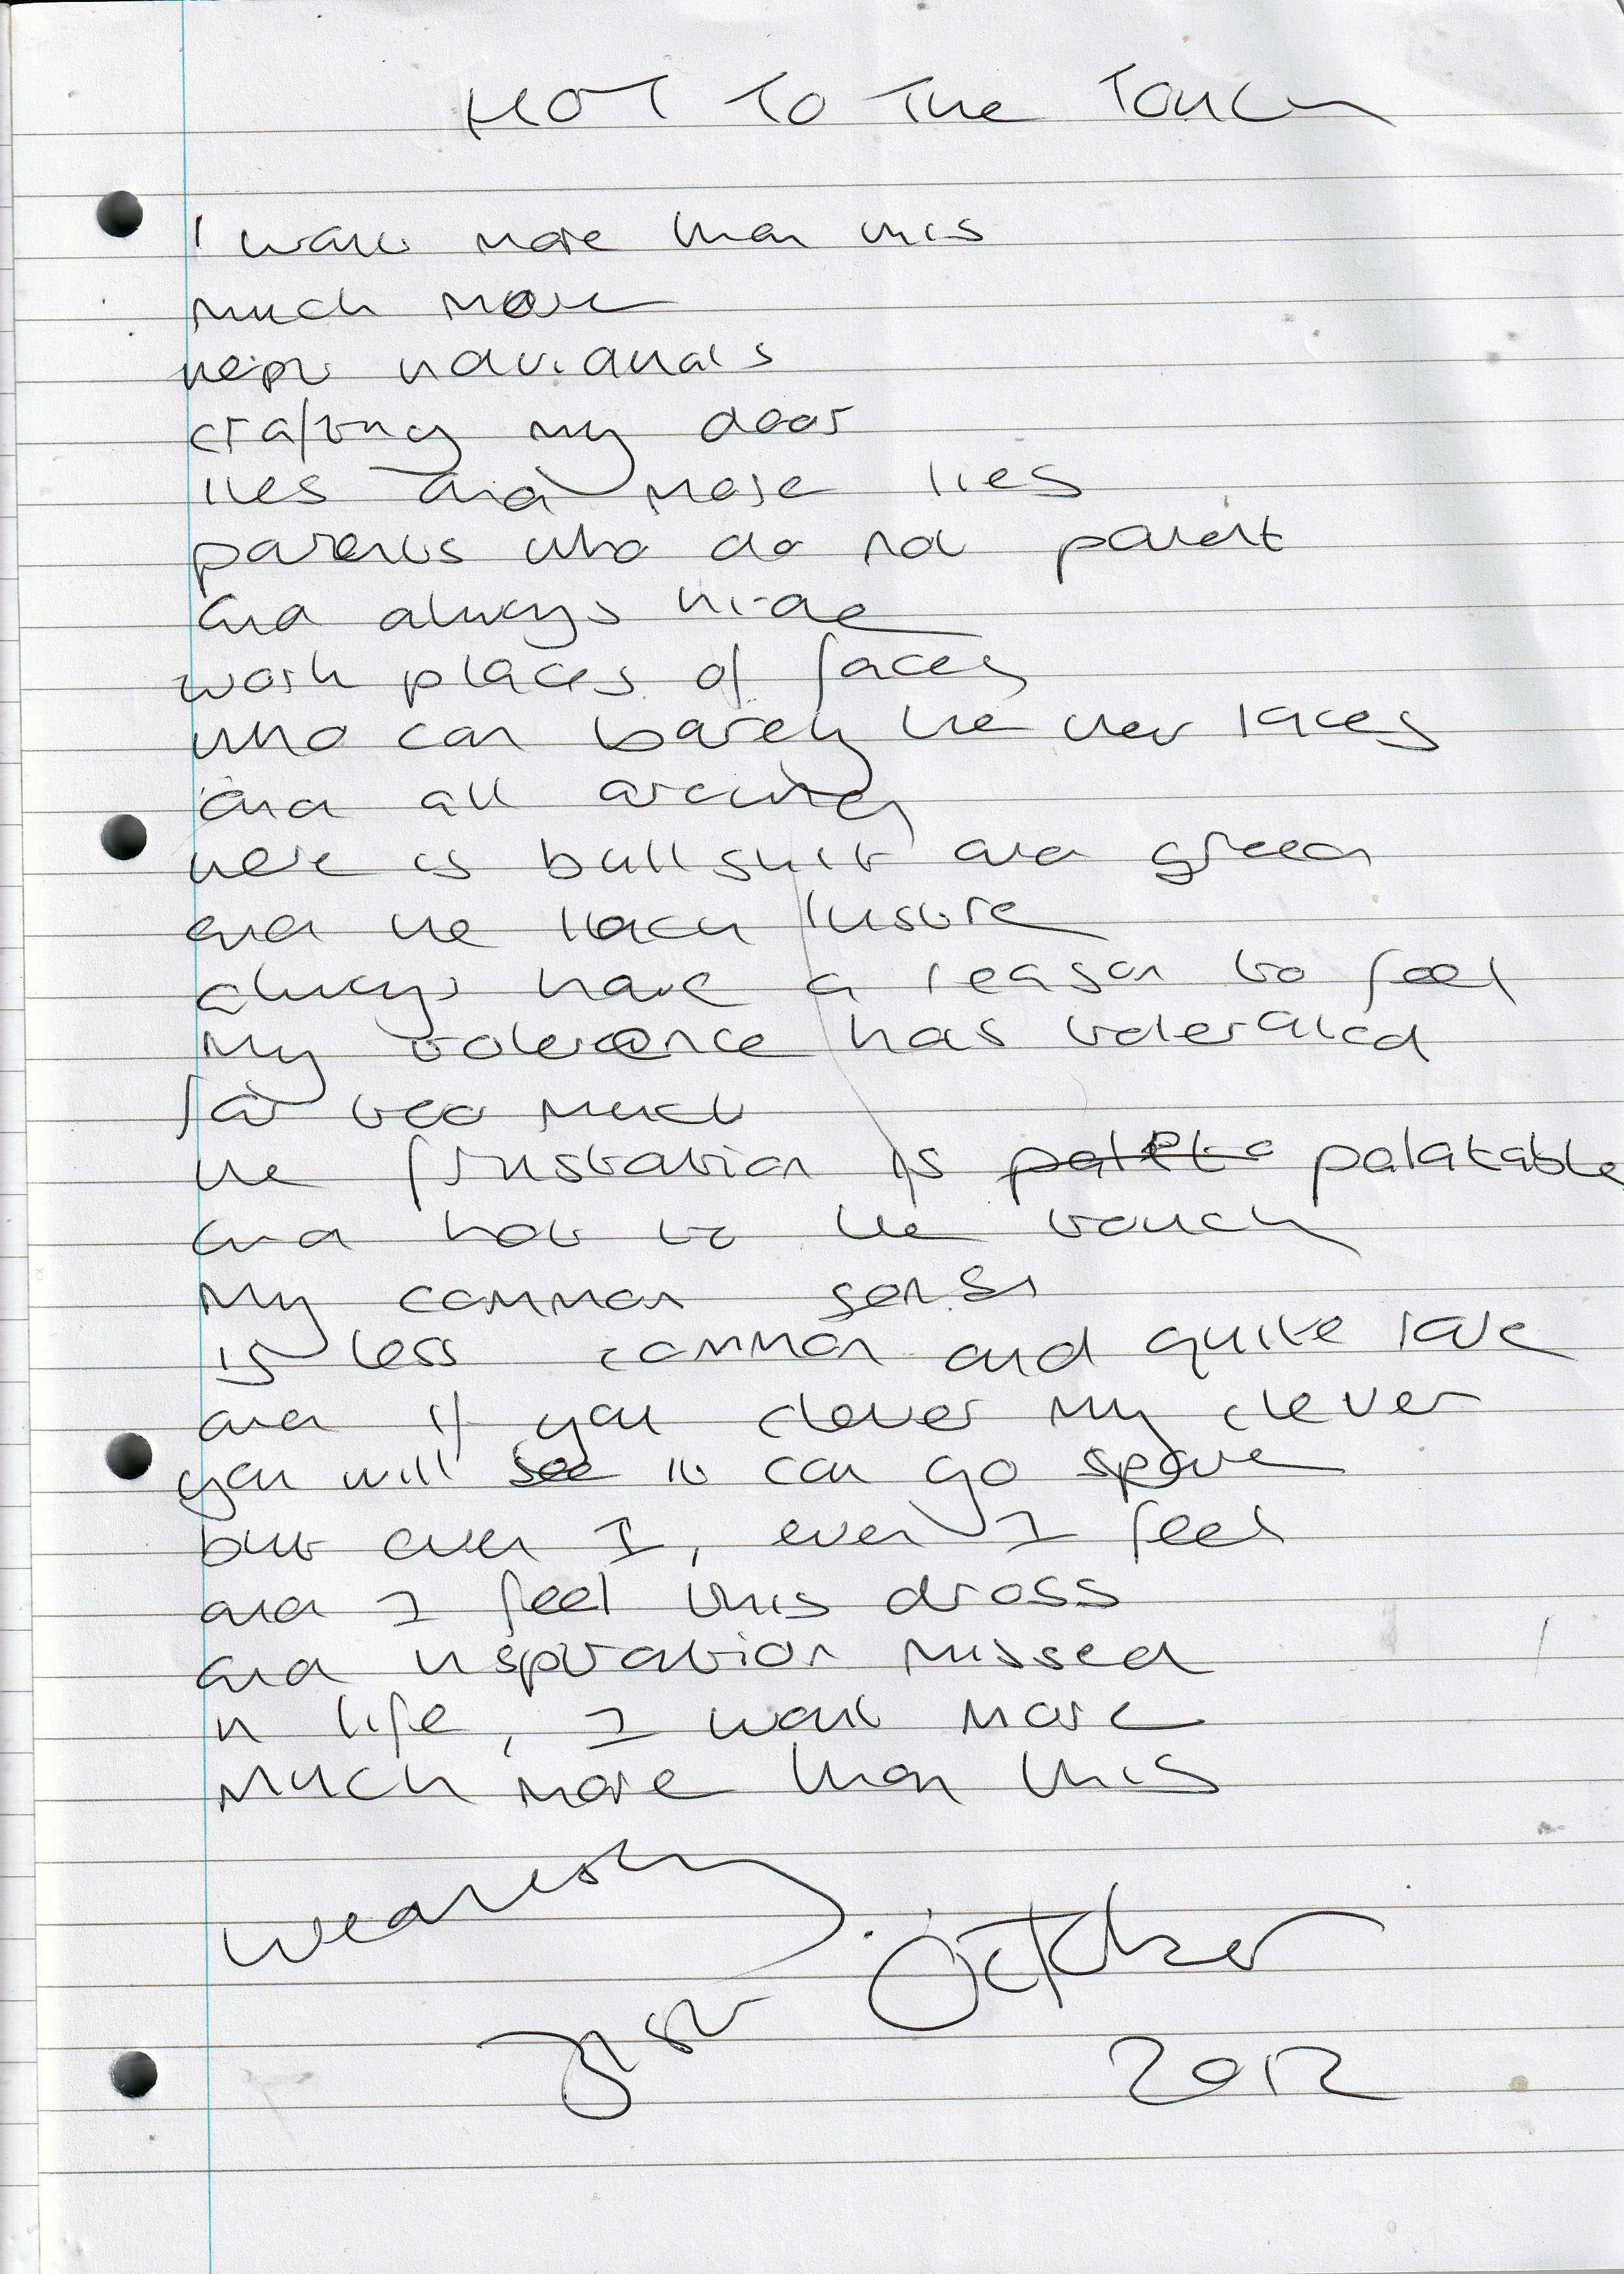 HOT TO THE TOUCH
I want more than this
much more
inept individuals
crafting my door
lies and more lies
parents who do not parent
and always hide
work places of faces
who can barely tie their laces
and all around
there is bullshit and greed
and the lack lustre
always have a reason to feel
My tolerance has tolerated
far too much
the frustration is palatable
and hot to the touch
My common sense
is less common and quite rare
and if you clever my clever
you will see it can go spare
but even I, even I feel
and I feel this dross
and inspiration missed
in life, I want more
much more than this
31st October
2012